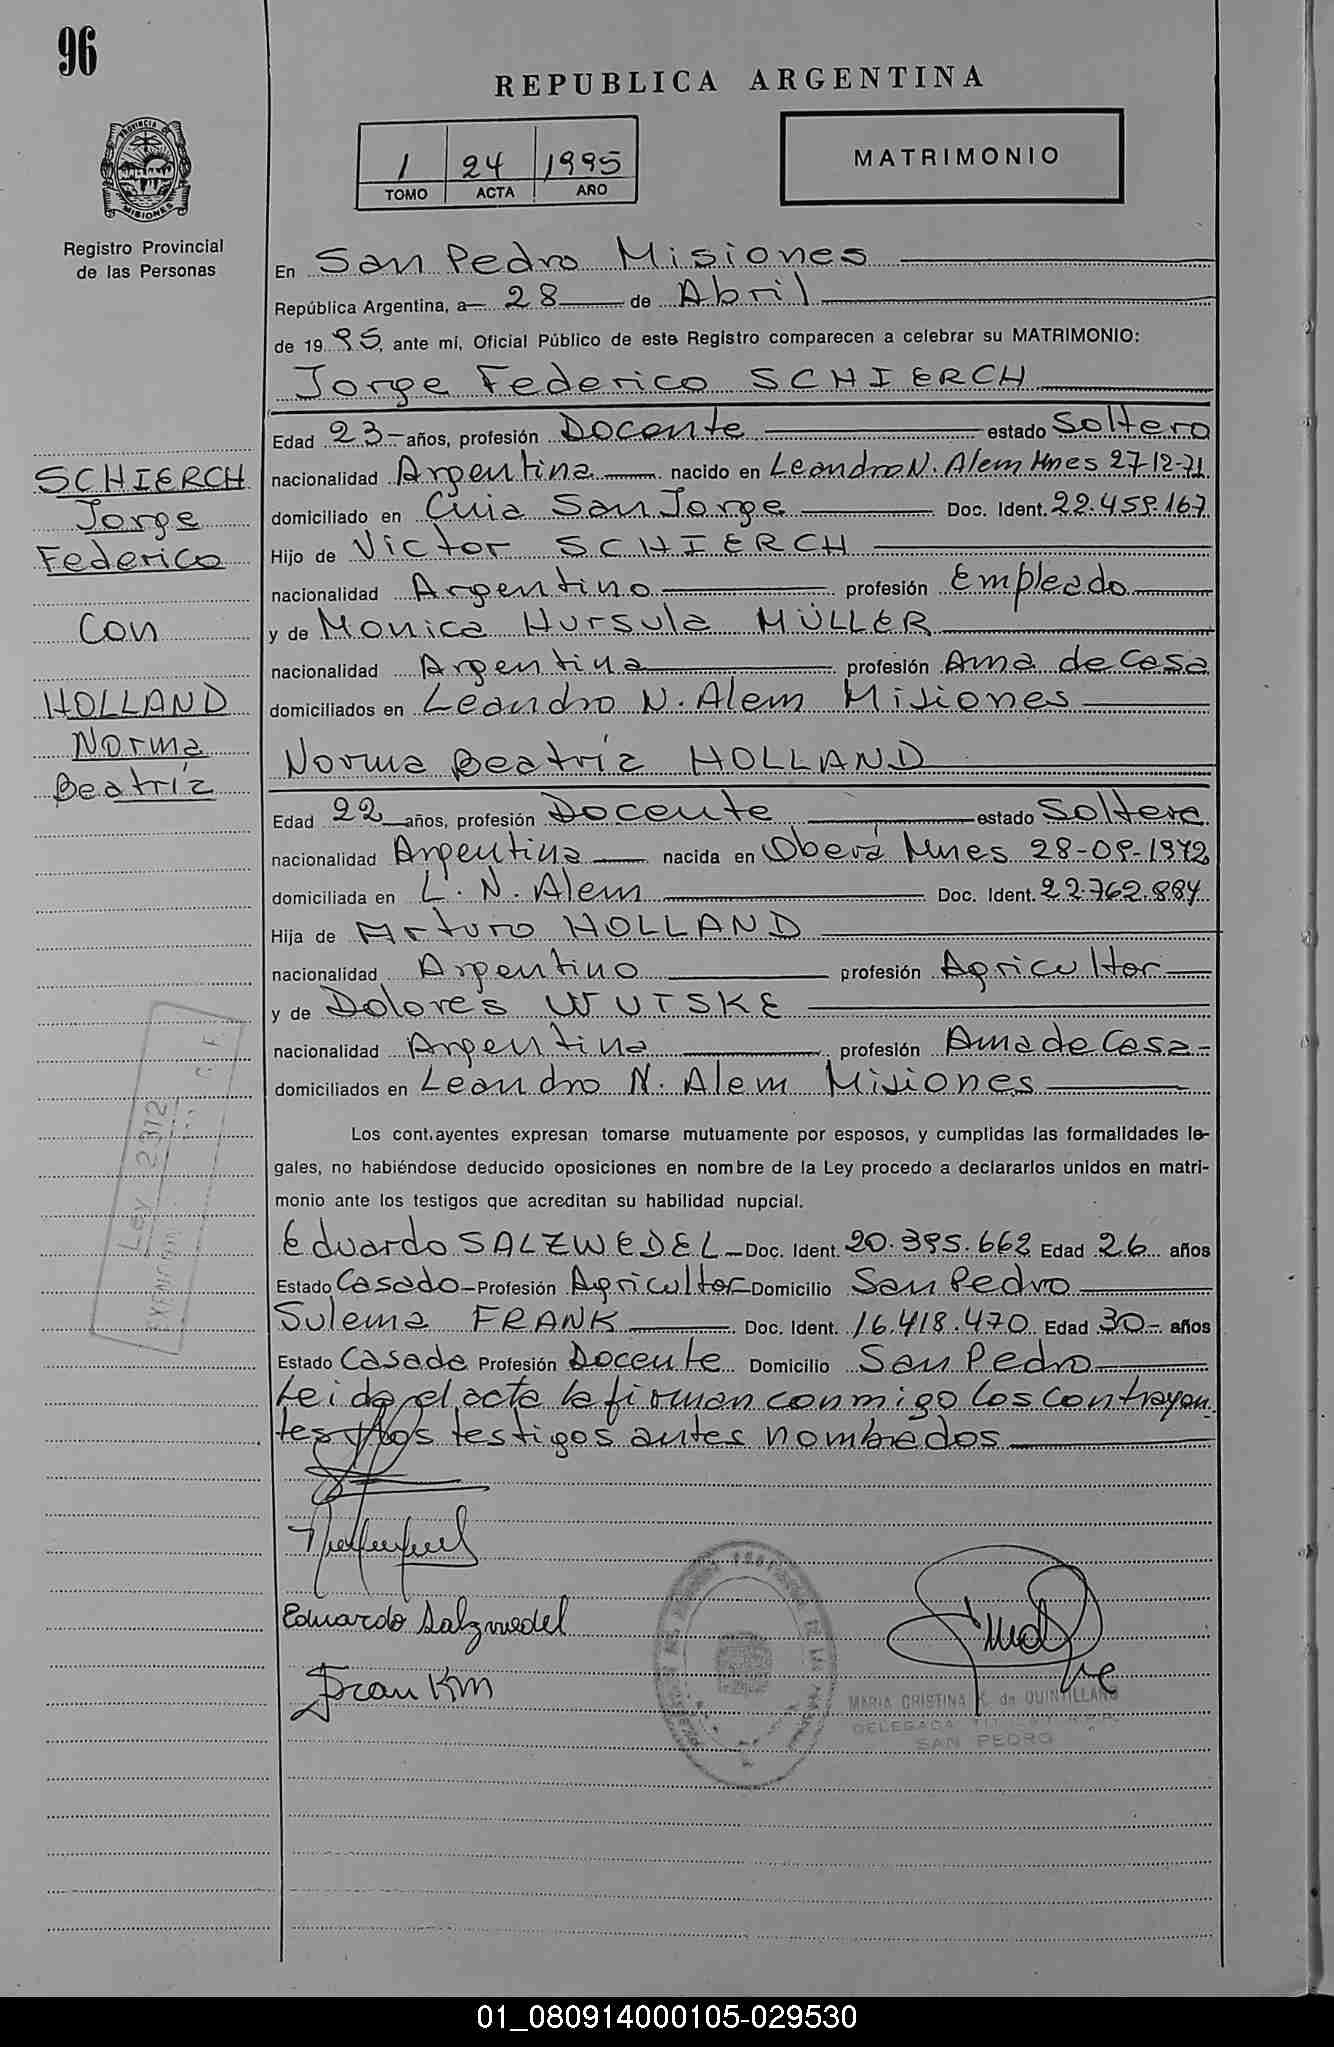 96
REPUBLICA ARGENTINA
1 24 1995
TOMO ACTA AÑO
MATRIMONIO
PROVINCIA DE
MISIONES
Registro Provincial
de las Personas
En San Pedro Misiones
República Argentina, a 28 de Abril
de 1995, ante mi, Oficial Público de este Registro comparecen a celebrar su MATRIMONIO:
Jorge Federico SCHIERCH
Edad 23 años, profesión Docente estado Soltero
nacionalidad Argentina nacido en Leandro N. Alem Mnes 27-12-71
domiciliado en Cuia San Jorge Doc. Ident. 22.459.167
Hijo de Victor SCHIERCH
nacionalidad Argentino profesión Empleado
y de Monica Hursula MÜLLER
nacionalidad Argentina profesión Ama de Casa
domiciliados en Leandro N. Alem Misiones
Norma Beatríz HOLLAND
Edad 22 años, profesión Docente estado Soltera
nacionalidad Argentina nacida en Oberá Mnes 28-09-1972
domiciliada en L. N. Alem Doc. Ident. 22.762.884
Hija de Arturo HOLLAND
nacionalidad Argentino profesión Agricultor
y de Dolores WUTSKE
nacionalidad Argentina profesión Ama de Casa
domiciliados en Leandro N. Alem Misiones
Los cont.ayentes expresan tomarse mutuamente por esposos, y cumplidas las formalidades le-
gales, no habiéndose deducido oposiciones en nombre de la Ley procedo a declararlos unidos en matri-
monio ante los testigos que acreditan su habilidad nupcial.
Eduardo SALZWEDEL Doc. Ident. 20.395.662 Edad 26 años
Estado Casado Profesión Agricultor Domicilio San Pedro
Sulema FRANK Doc. Ident. 16.418.470 Edad 30 años
Estado Casada Profesión Docente Domicilio San Pedro
Leida el acta la firman conmigo los contrayen
tes y los testigos antes nombrados
Eduardo Salzwedel
MARIA CRISTINA K. de QUINTILLANO
DELEGADA
SAN PEDRO
SCHIERCH
Jorge
Federico
Con
HOLLAND
Norma
Beatríz
Ley 2372
01_080914000105-029530